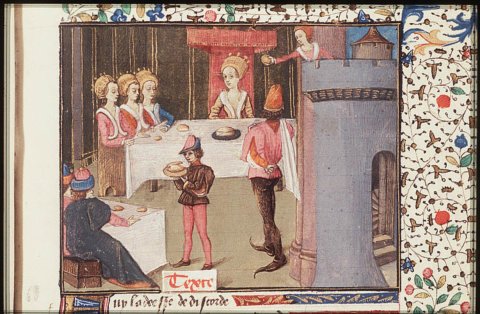 Texte
uy la deesse de discorde